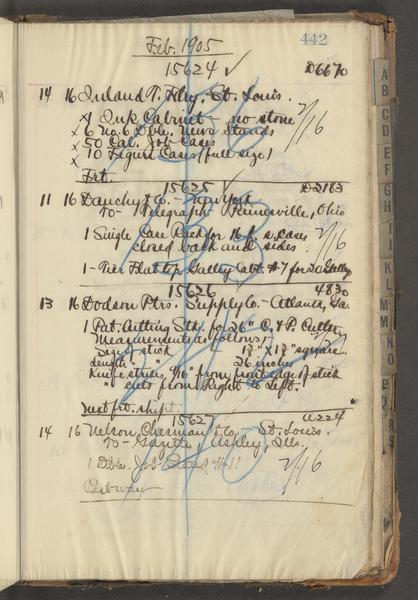 Feb. 1905
442
15624 ✓ D6670
14 16 Inland T. Fdry. St. Louis.
x 1 Ink Cabinet - no stone
x 6 No. 6 Dble. News Stands 2/16
x 50 Cal. Job Cases
x 10 Figure Cases (full size)
Frt.
15625 ✓ D2183
11 16 Dauchy & Co. - New York
To - Telegraph Painesville, Ohio
1 Single Case Rack for 16 f. s. cases 2/16
closed back and sides
1 - Tier Flat top Galley Cabt. #7 for 20 Galleys
15626 4830
13 16 Dodson Ptrs. Supply Co. - Atlanta, Ga.
1 Pat. Cutting Stk. for 26" C. & P. Cutter
Measurements as follows;
Size of stick square
Length " 26 inches
Knife strikes 7/16" from front edge of stick
" cuts from Right to Left.
Next frt. shipt.
15627 a224
14 16 Nelson, Chesman & Co. St. Louis.
To - Gazette, Ashley, Ills.
1 Dble. Job Stand #11 2/16
A
B
C
D
E
F
G
H
J
K
L
M
N
O
P
R
S